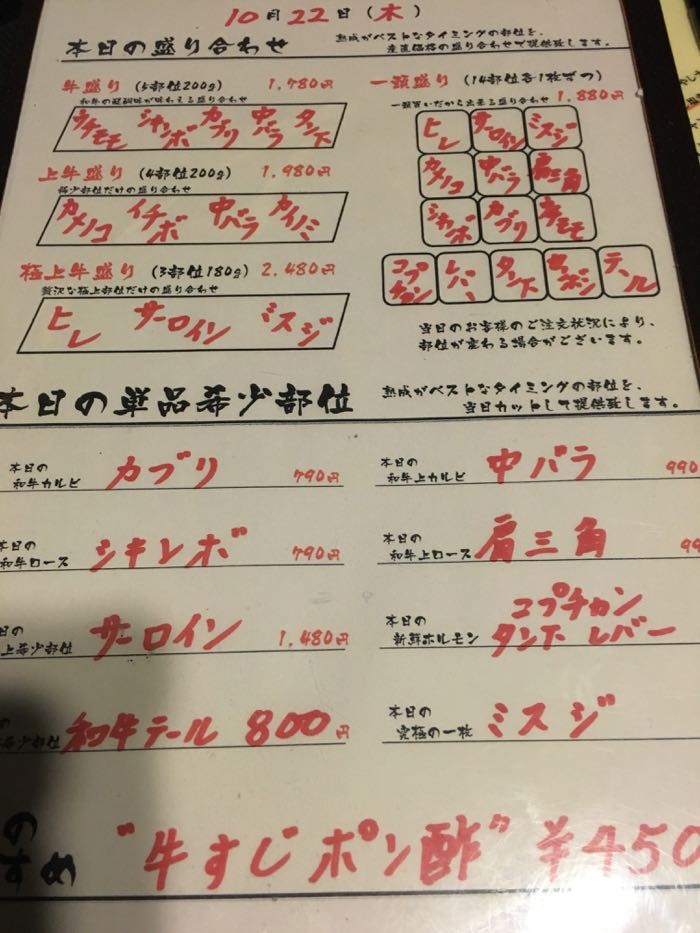 10月22日(木)
本日の盛り合わせ
熟成がベストなタイミングの部位を、
産直価格の盛り合わせで提供致します。
牛盛り(5部位200g) 1,780円
和牛の醍醐味が味わえる盛り合わせ
ウチモモ シキンボ カブリ 中バラ タン下
上牛盛り(4部位200g) 1,980円
希少部位だけの盛り合わせ
カメノコ イチボ 中バラ カイノミ
極上牛盛り(3部位180g) 2,480円
贅沢な極上部位だけの盛り合わせ
ヒレ サーロイン ミスジ
一頭盛り(14部位各1枚ずつ)
一頭買いだから出来る盛り合わせ 1,880円
ヒレ サーロイン ミスジ
カメノコ 中バラ 肩三角
シキンボ カブリ
コプチャン レバー タン下 テール
当日のお客様のご注文状況により、
部位が変わる場合がございます。
本日の単品希少部位
熟成がベストなタイミングの部位を、
当日カットして提供致します。
本日の
和牛カルビ カブリ 790円
本日の
和牛上カルビ 中バラ 990
本日の
和牛ロース シキンボ 790円
本日の
和牛上ロース 肩三角 99
日の
上希少部位 サーロイン 1,480円
本日の
新鮮ホルモン コプチャン
タン下 レバー
の
希少部位 和牛テール 800円
本日の
究極の一枚 ミスジ
のすめ "牛すじポン酢" ¥450